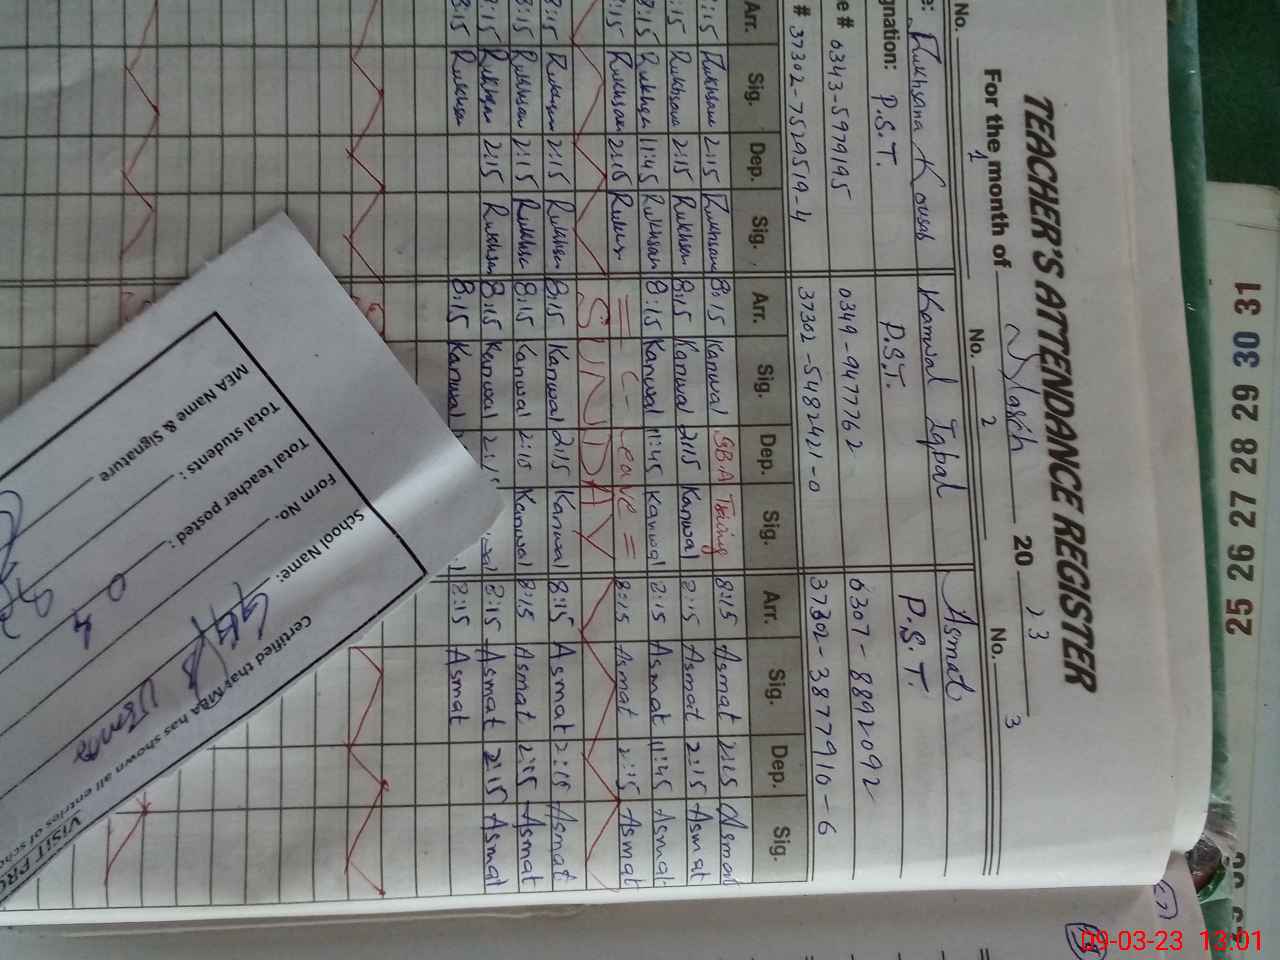 TEACHER'S ATTENDANCE REGISTER
For the month of March 20 23
No. 1 No. 2 No. 3
Rukhsana Kousar Kanwal Iqbal Asmat
gnation: P.S.T. P.S.T. P.S.T.
e # 0343-5979195 0349-9477762 0307-8892092
# 37302-7529519-4 37302-5482421-0 37302-3877910-6
Arr. Sig. Dep. Sig. Arr. Sig. Dep. Sig. Arr. Sig. Dep. Sig.
:15 Rukhsana 2:15 Rukhsana 8:15 Kanwal 8:15 Asmat 2:15 Asmat
:15 Rukhsana 2:15 Rukhsan 8:15 Kanwal 2:15 Kanwal 8:15 Asmat 2:15 Asmat
8:15 Rukhsan 11:45 Rukhsan 8:15 Kanwal 11:45 Kanwal 8:15 Asmat 11:45 Asmat
8:15 Rukhsan 2:15 = C-Leave = 8:15 Asmat 2:15 Asmat
SUNDAY
8:15 Rukhsan 2:15 Rukhsan 8:15 Kanwal 2:15 Kanwal 8:15 Asmat 2:15 Asmat
8:15 Rukhsan 2:15 Rukhsan 8:15 Kanwal 2:15 Kanwal 8:15 Asmat 2:15 Asmat
8:15 Rukhsan 2:15 Rukhsan 8:15 Kanwal 8:15 Asmat 2:15 Asmat
8:15 Rukhsan 8:15 Kanwal 8:15 Asmat
VISIT PRO
Certified that MEA has shown all entries of scho
School Name:
Form No.
Total teacher posted: 04
Total students:
MEA Name & Signature
25 26 27 28 29 30 31
09-03-23 13:01